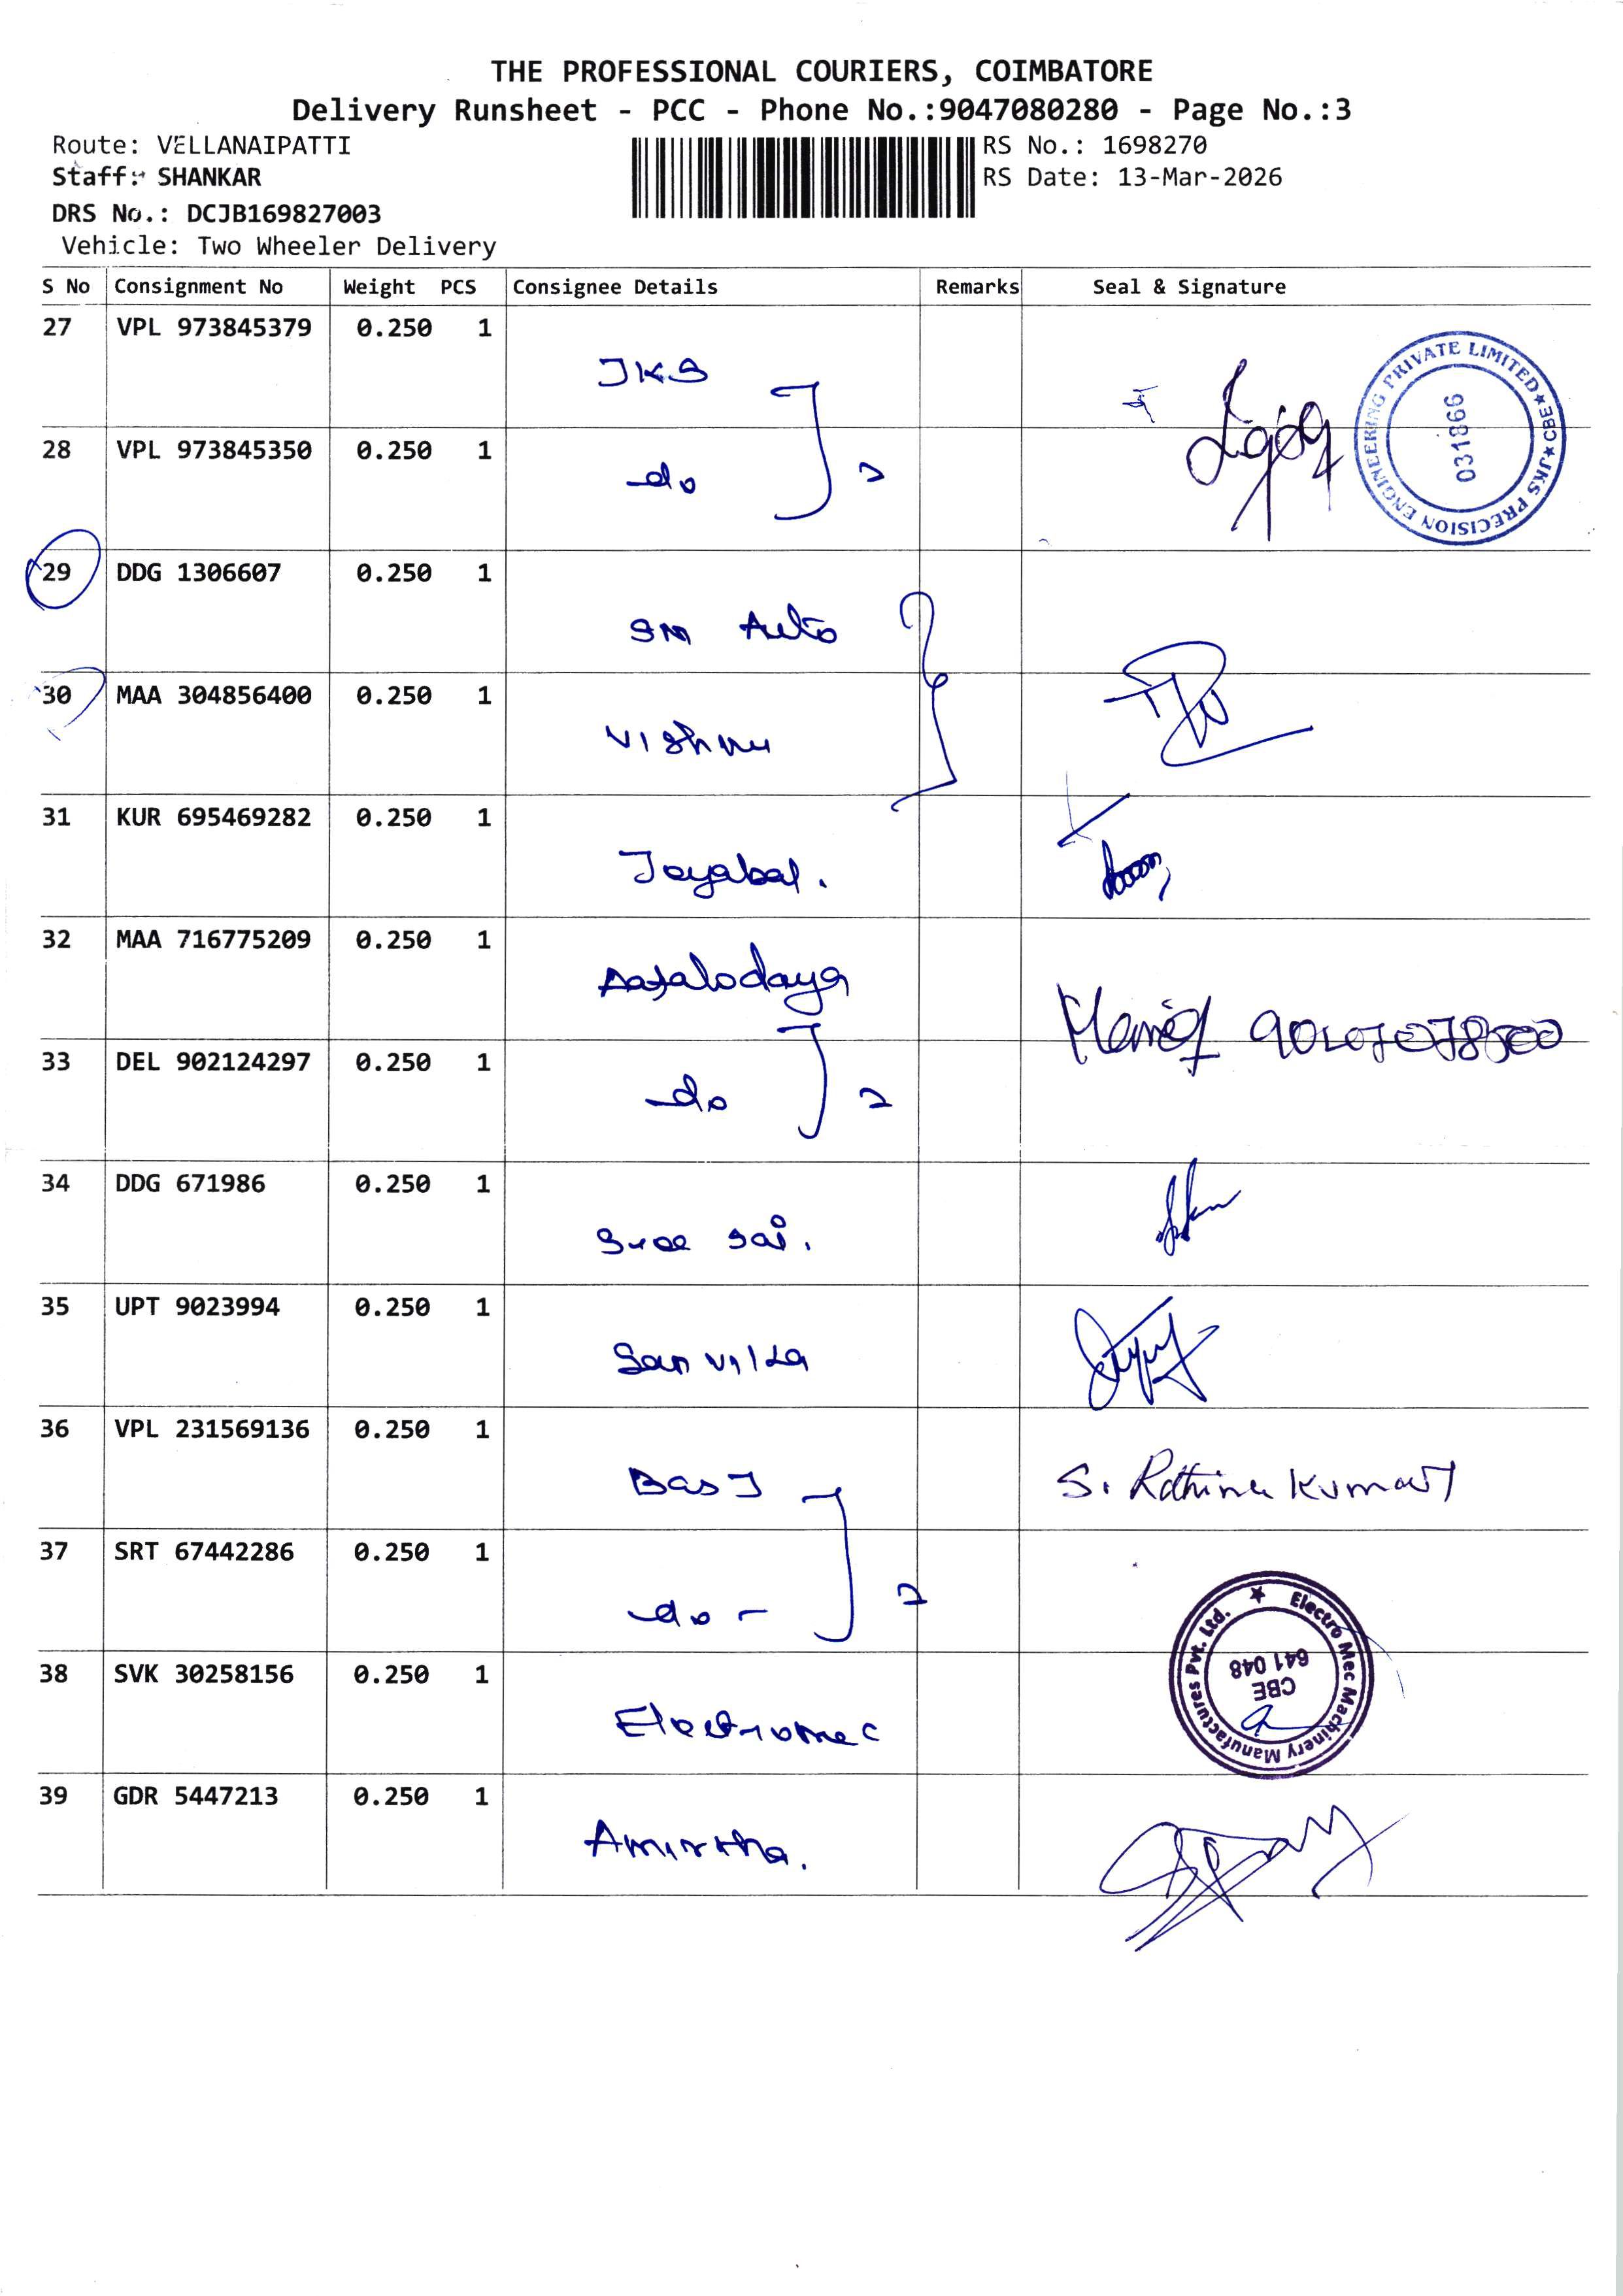 THE PROFESSIONAL COURIERS, COIMBATORE
Delivery Runsheet - PCC - Phone No.:9047080280 - Page No.:3
Route: VELLANAIPATTI
RS No.: 1698270
Staff: SHANKAR
RS Date: 13-Mar-2026
DRS No.: DCJB169827003
Vehicle: Two Wheeler Delivery
S No Consignment No Weight PCS Consignee Details Remarks Seal & Signature
27 VPL 973845379 0.250 1
JKS
28 VPL 973845350 0.250 1
do 2
JKS PRECISION ENGINEERING PRIVATE LIMITED ★ CBE ★
031866
29 DDG 1306607 0.250 1
SM Auto
30 MAA 304856400 0.250 1
Vishnu
31 KUR 695469282 0.250 1
Jayabal.
32 MAA 716775209 0.250 1
33 DEL 902124297 0.250 1
do 2
34 DDG 671986 0.250 1
Sree Sai.
35 UPT 9023994 0.250 1
36 VPL 231569136 0.250 1
S. Rathina Kumar
37 SRT 67442286 0.250 1
do - 2
38 SVK 30258156 0.250 1
Electromec
Electro Mec Machinery Manufactures Pvt. Ltd. ★
CBE
641 048
39 GDR 5447213 0.250 1
Amirtha.